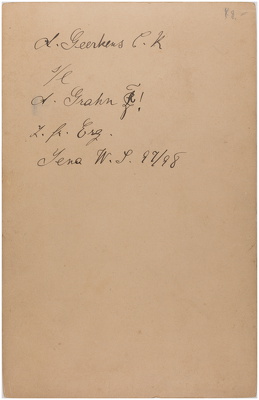 12.-
A. Geerkens C. K
s/l
A. Grahn
z. fr. Erg.
Jena W. S. 97/98